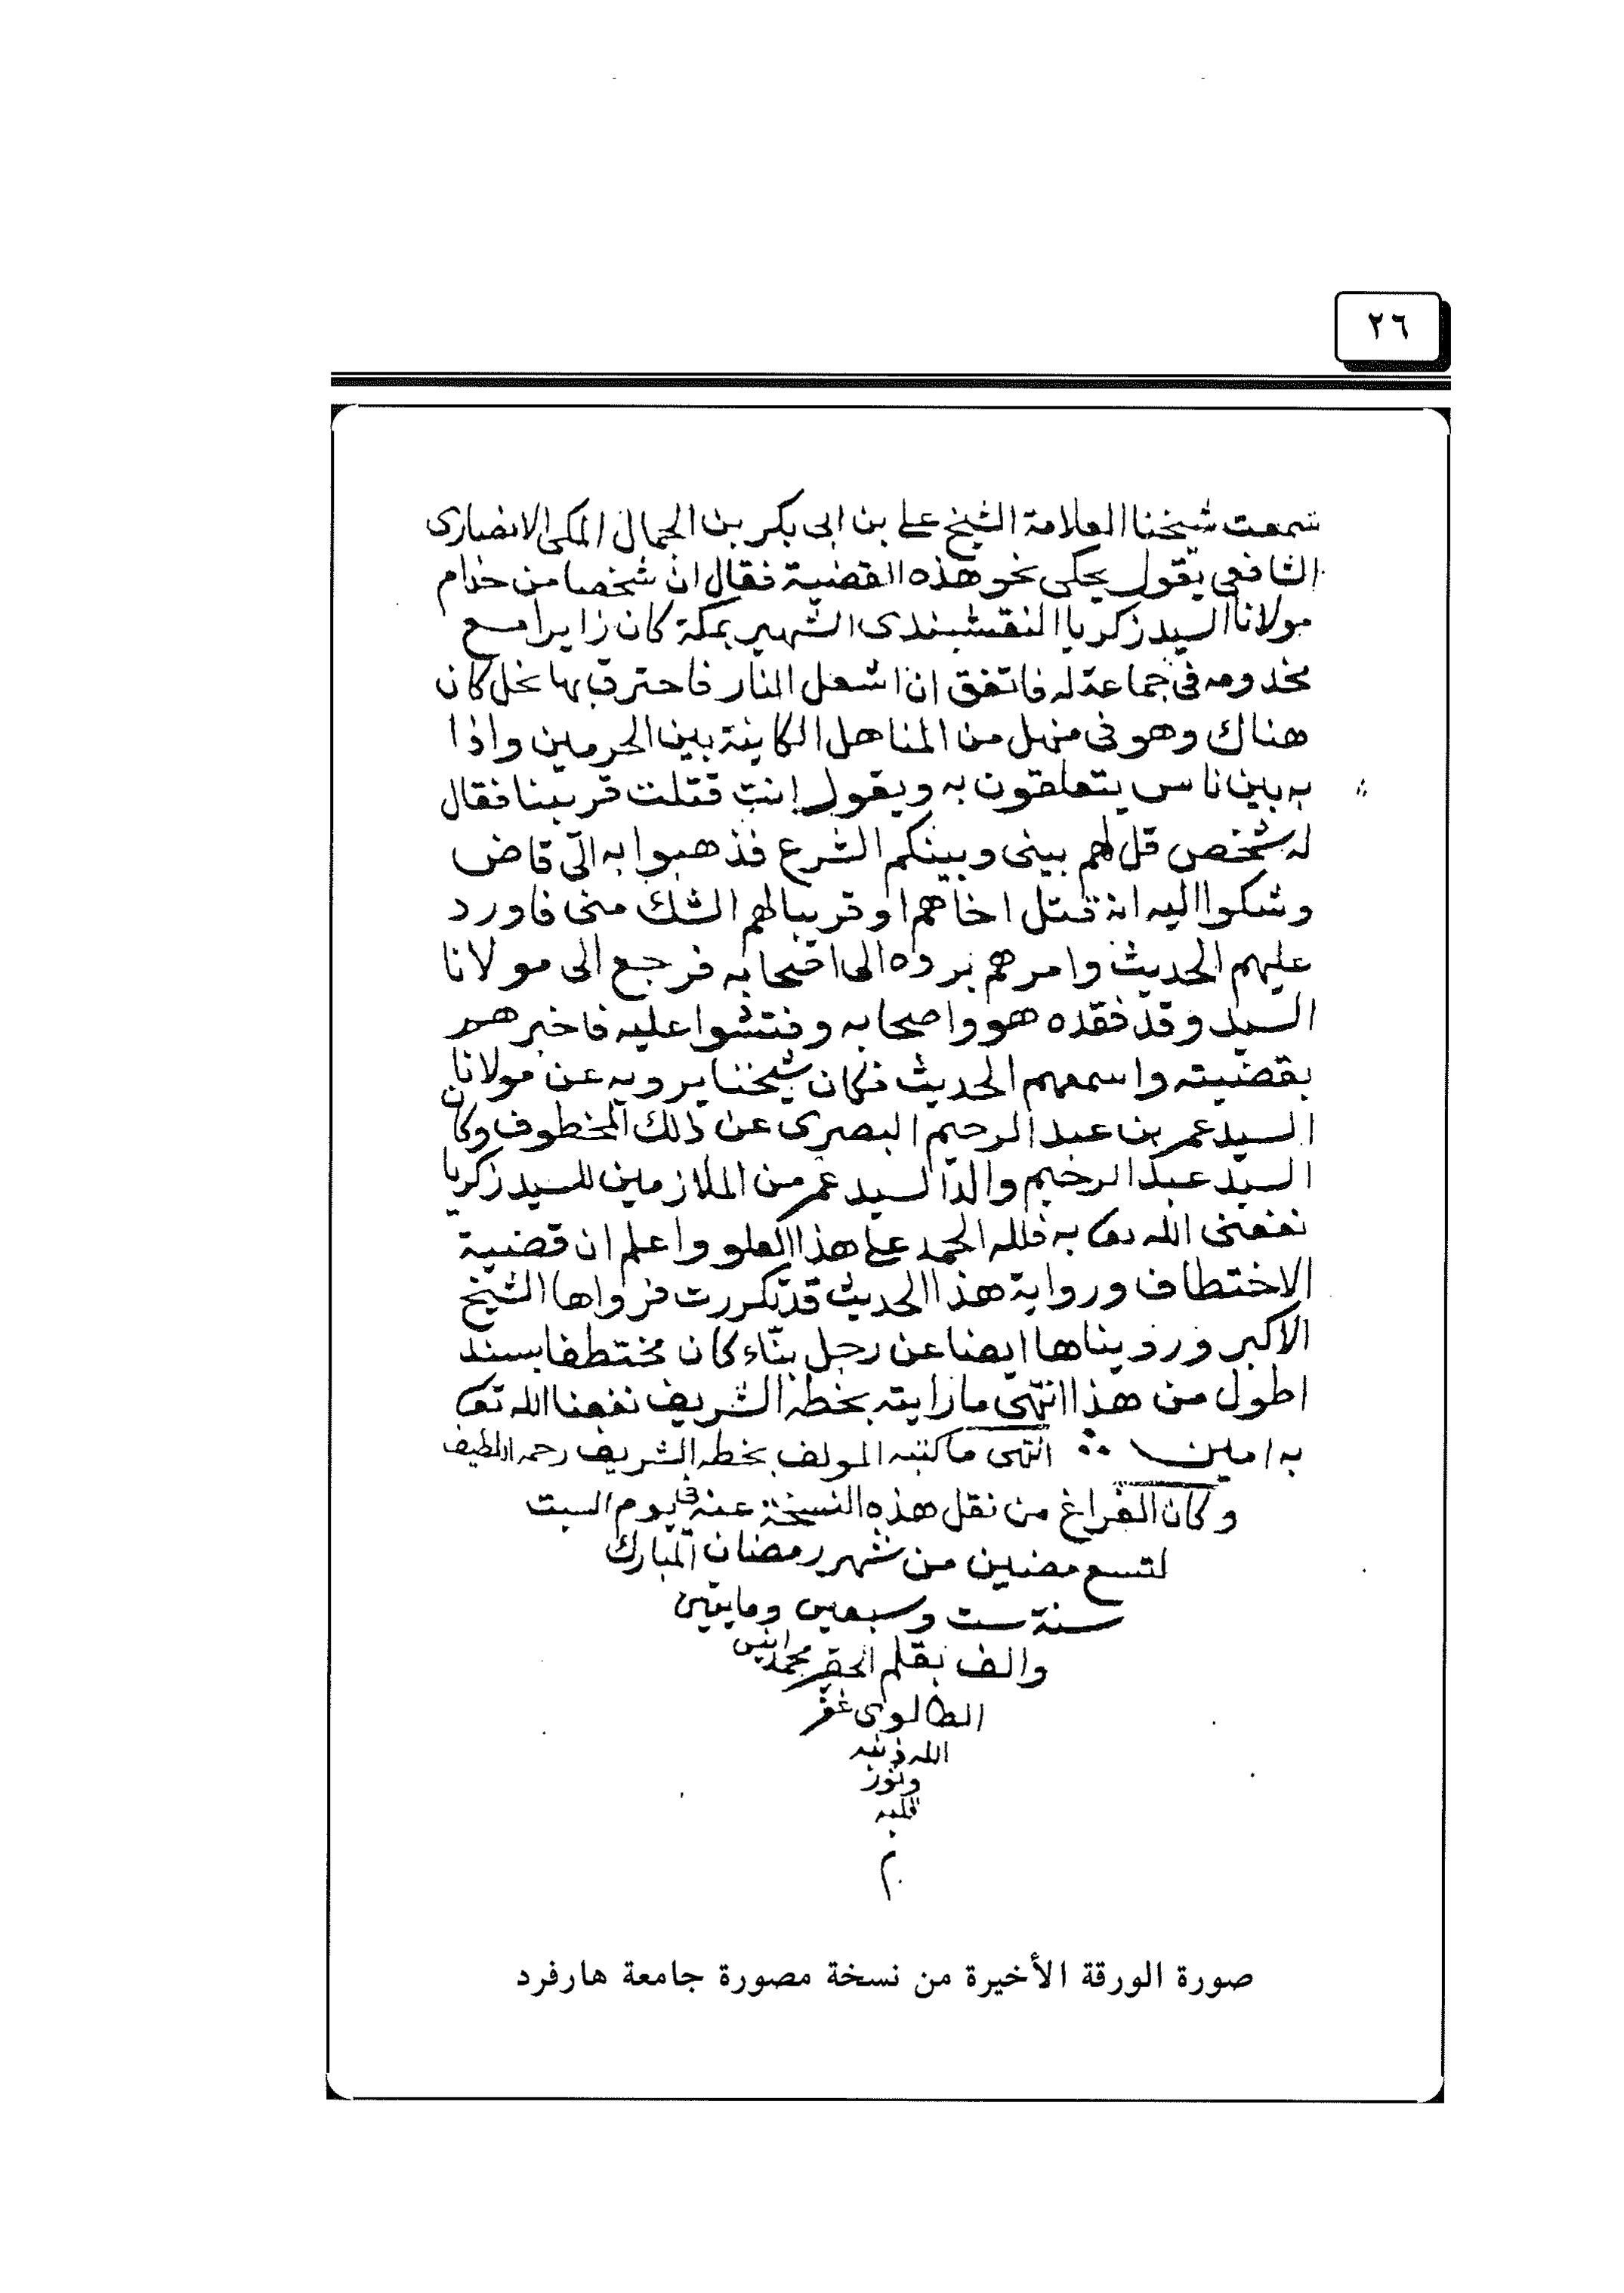 ٢٦
سمعت شيخنا العلامة الشيخ على بن ابى بكر بن الجمال المكى الانصارى
الشافعى يقول يحكى نحو هذه القضية فقال ان شخصا من خدام
مولانا السيد زكريا النقشبندى الشهير بمكة كان زايرا مع
مخدومه فى جماعة له فاتفق ان اشعل النار فاحترق بها نحل كان
هناك وهو فى منهل من المناهل الكاينة بين الحرمين واذا
به بين ناس يتعلقون به ويقول انت قتلت قريبنا فقال
له شخص قل لهم بينى وبينكم الشرع فذهبوا به الى قاض
وشكوا اليه انه قتل اخاهم او قريبا لهم الشك منى فاورد
عليهم الحديث وامرهم برده الى اصحابه فرجع الى مولانا
السيد وقد فقده هو واصحابه وفتشوا عليه فاخبرهم
بقضيته واسمعهم الحديث فكان شيخنا يرويه عن مولانا
السيد عمر بن عبد الرحيم البصرى عن ذلك المخطوف وكان
السيد عبد الرحيم والد السيد عمر من الملازمين للسيد زكريا
نفعنى الله تعا به فلله الحمد على هذا العلو واعلم ان قضية
الاختطاف ورواية هذا الحديث قد تكررت فرواها الشيخ
الاكبر ورويناها ايضا عن رجل بنّاء كان مختطفا بسند
اطول من هذا انتهى ما رايته بخطه الشريف نفعنا الله تعا
به امين انتهى ما كتبه المولف بخطه الشريف رحمه اللطيف
وكان الفراغ من نقل هذه النسخة عنه فى يوم السبت
لتسع مضين من شهر رمضان المبارك
سنة ست وسبعين ومايتين
والف بقلم الحقير محمد انيس
الطالوى غفر
الله ذنبه
ونور
قلبه
م
صورة الورقة الأخيرة من نسخة مصورة جامعة هارفرد